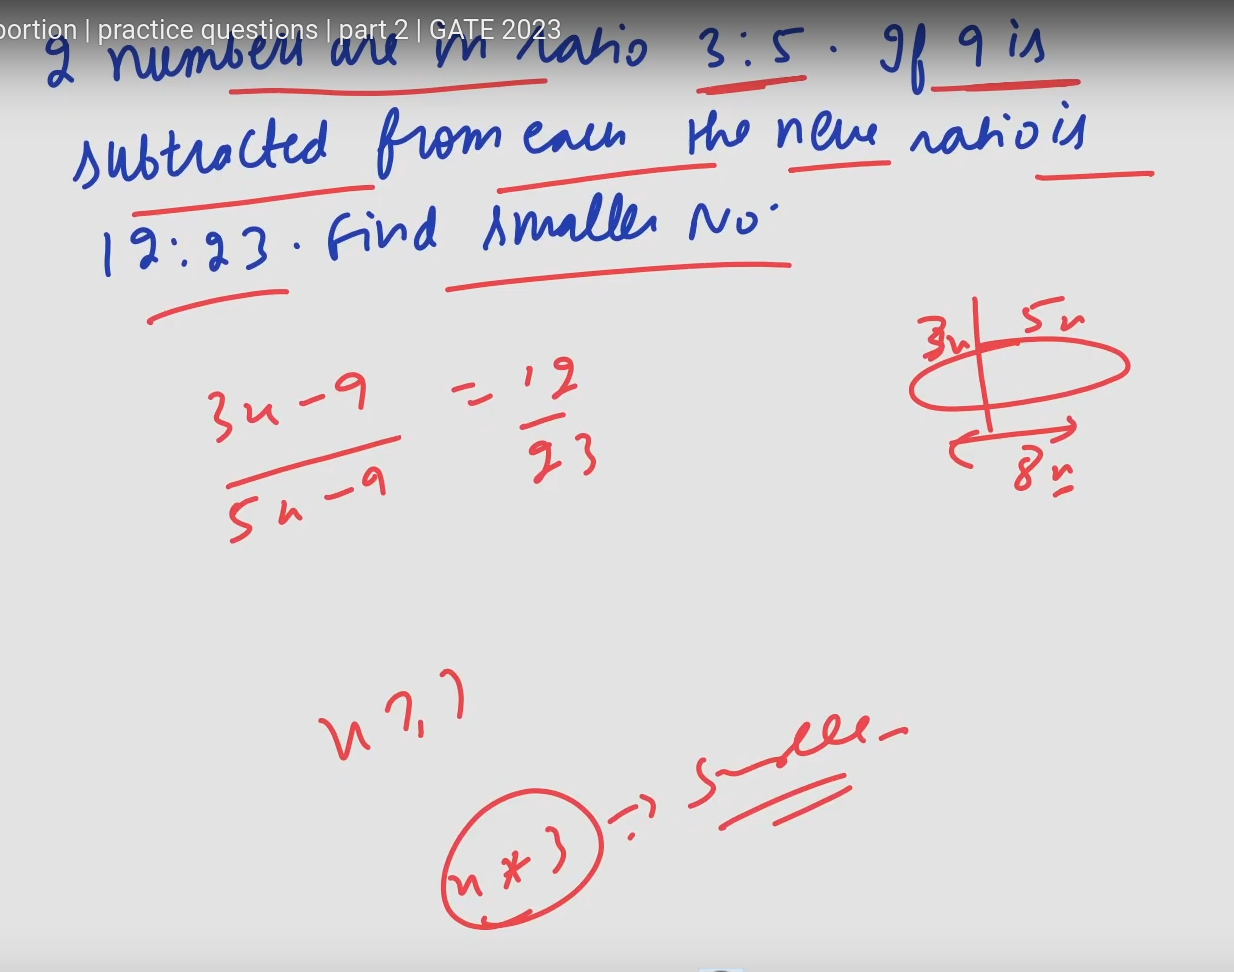 portion | practice questions | part 2 | GATE 2023
2 numbers are in ratio 3:5. If 9 is
subtracted from each the new ratio is
12:23. Find smaller No.
3x 5x
8x
3x-9 = 12
5x-9 23
x ?
x * 3 => smaller